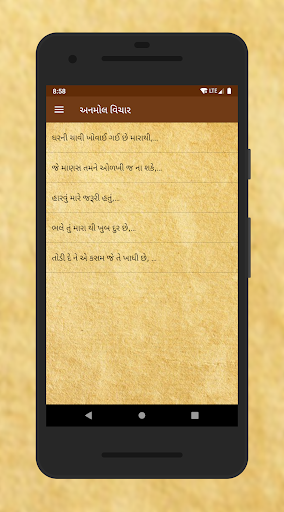 8:58
LTE
અનમોલ વિચાર
ઘરની ચાવી ખોવાઈ ગઈ છે મારાથી,...
જે માણસ તમને ઓળખી જ ના શકે,...
હારવું મારે જરૂરી હતું,...
ભલે તું મારા થી ખુબ દુર છે,...
તોડી દે ને એ કસમ જે તે ખાધી છે, ...